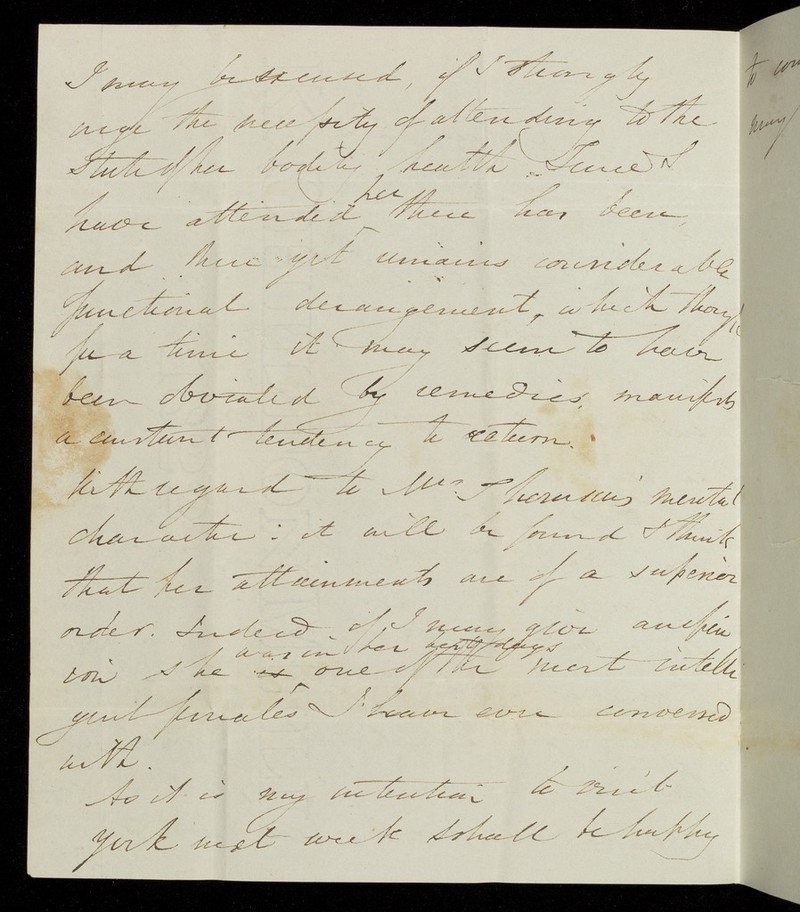 I may be excused, if I strongly
urge the necessity of attending to the
State of her bodily health. Since I
have attended her there has been,
and there yet remains considerable
functional derangement, which though
for a time it may seem to have
been obviated by remedies, manifests
a constant tendency to return.
With regard to Mrs. mental
character: it will be found I think
that her attainments are of a superior
order. Indeed if I may give an opin
ion she is was in her best days one of the most intelli
gent females I have ever conversed
with.
As it is my intention to visit
York next week I shall be happy
to con
may